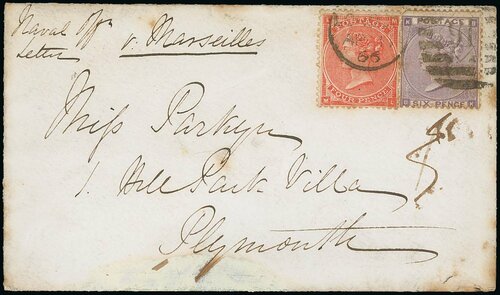 Naval Off
Letter
v. Marseilles
POSTAGE
FOUR PENCE
POSTAGE
SIX PENCE
66
Miss Parkyn
1. Hill Park Villa
Plymouth